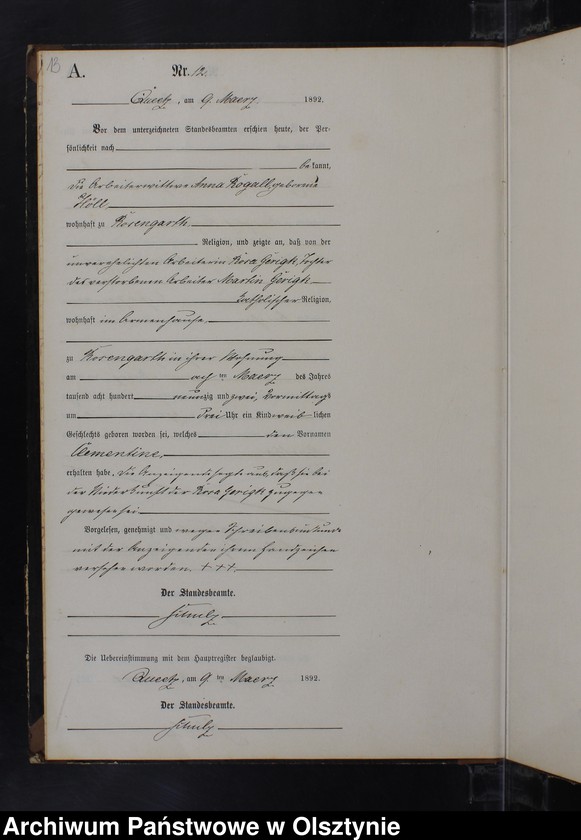 13
A. Nr. 12.
Queetz, am 9. Maerz 1892.
Vor dem unterzeichneten Standesbeamten erschien heute, der Per-
sönlichkeit nach
bekannt,
die Arbeiterwittwe Anna Rogall geborene
Höll
wohnhaft zu Rosengarth
Religion, und zeigte an, daß von der
unverehelichten Arbeiterin Rosa Gerigk, Tochter
des verstorbenen Arbeiter Martin Gerigk
katholischer Religion,
wohnhaft im Armenhause
zu Rosengarth in ihrer Wohnung
am acht ten Maerz des Jahres
tausend acht hundert neunzig und zwei, Vormittags
um drei Uhr ein Kind weib lichen
Geschlechts geboren worden sei, welches den Vornamen
Clementine,
erhalten habe. Die Anzeigende sagte aus, daß sie bei
der Niederkunft der Rosa Gerigk zugegen
gewesen sei
Vorgelesen, genehmigt und wegen Schreibensunkunde
mit der Anzeigenden ihrem Handzeichen
versehen worden. + + +.
Der Standesbeamte.
Schulz
Die Uebereinstimmung mit dem Hauptregister beglaubigt.
Queetz, am 9. ten Maerz 1892.
Der Standesbeamte.
Schulz
Archiwum Państwowe w Olsztynie